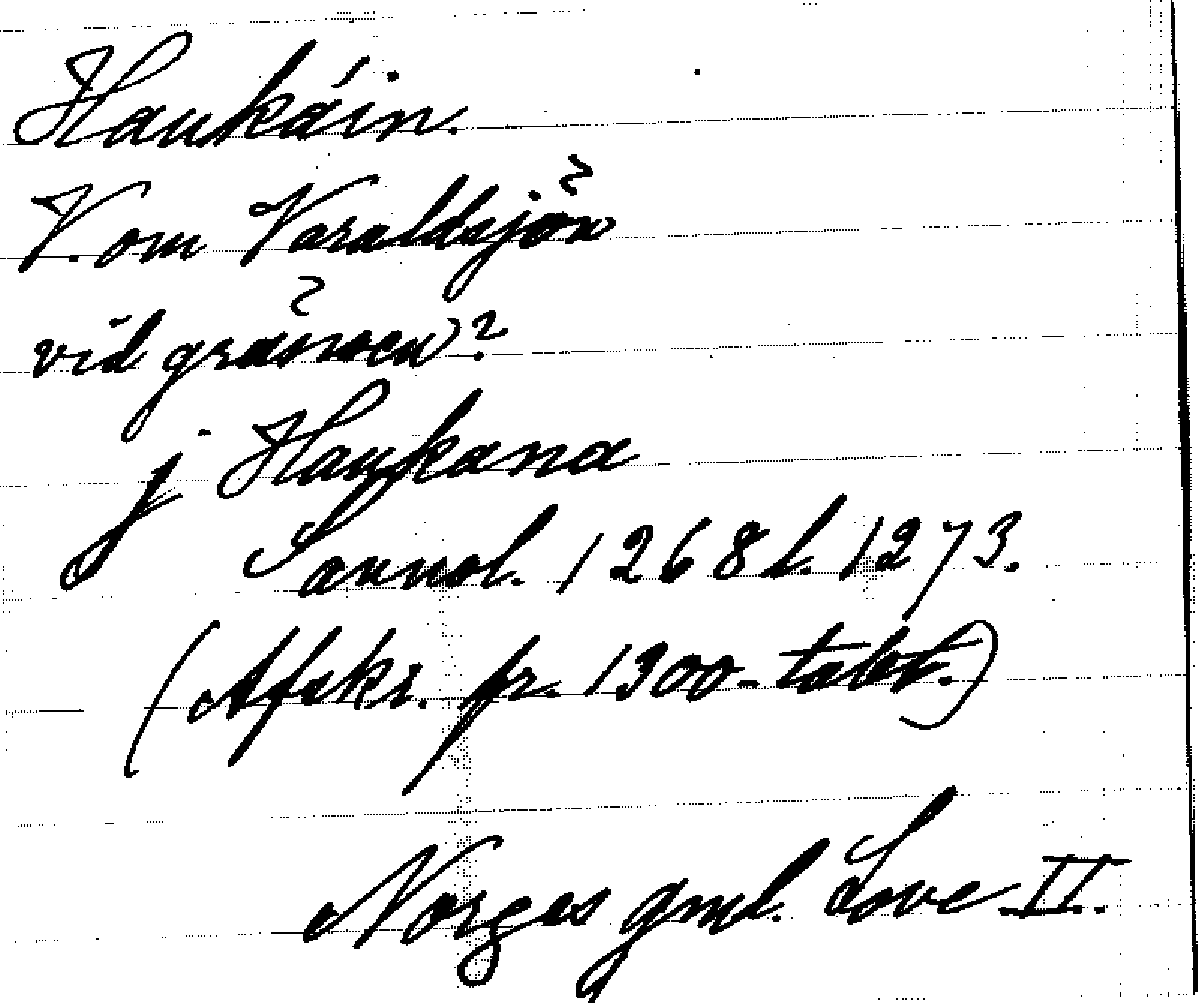 Haukáin.
V. om Varaldsjön
vid gränsen?
j Haukana
Sannol. 1268 l. 1273.
(Afskr. fr. 1300-talet.)
Norges gml. Love II.